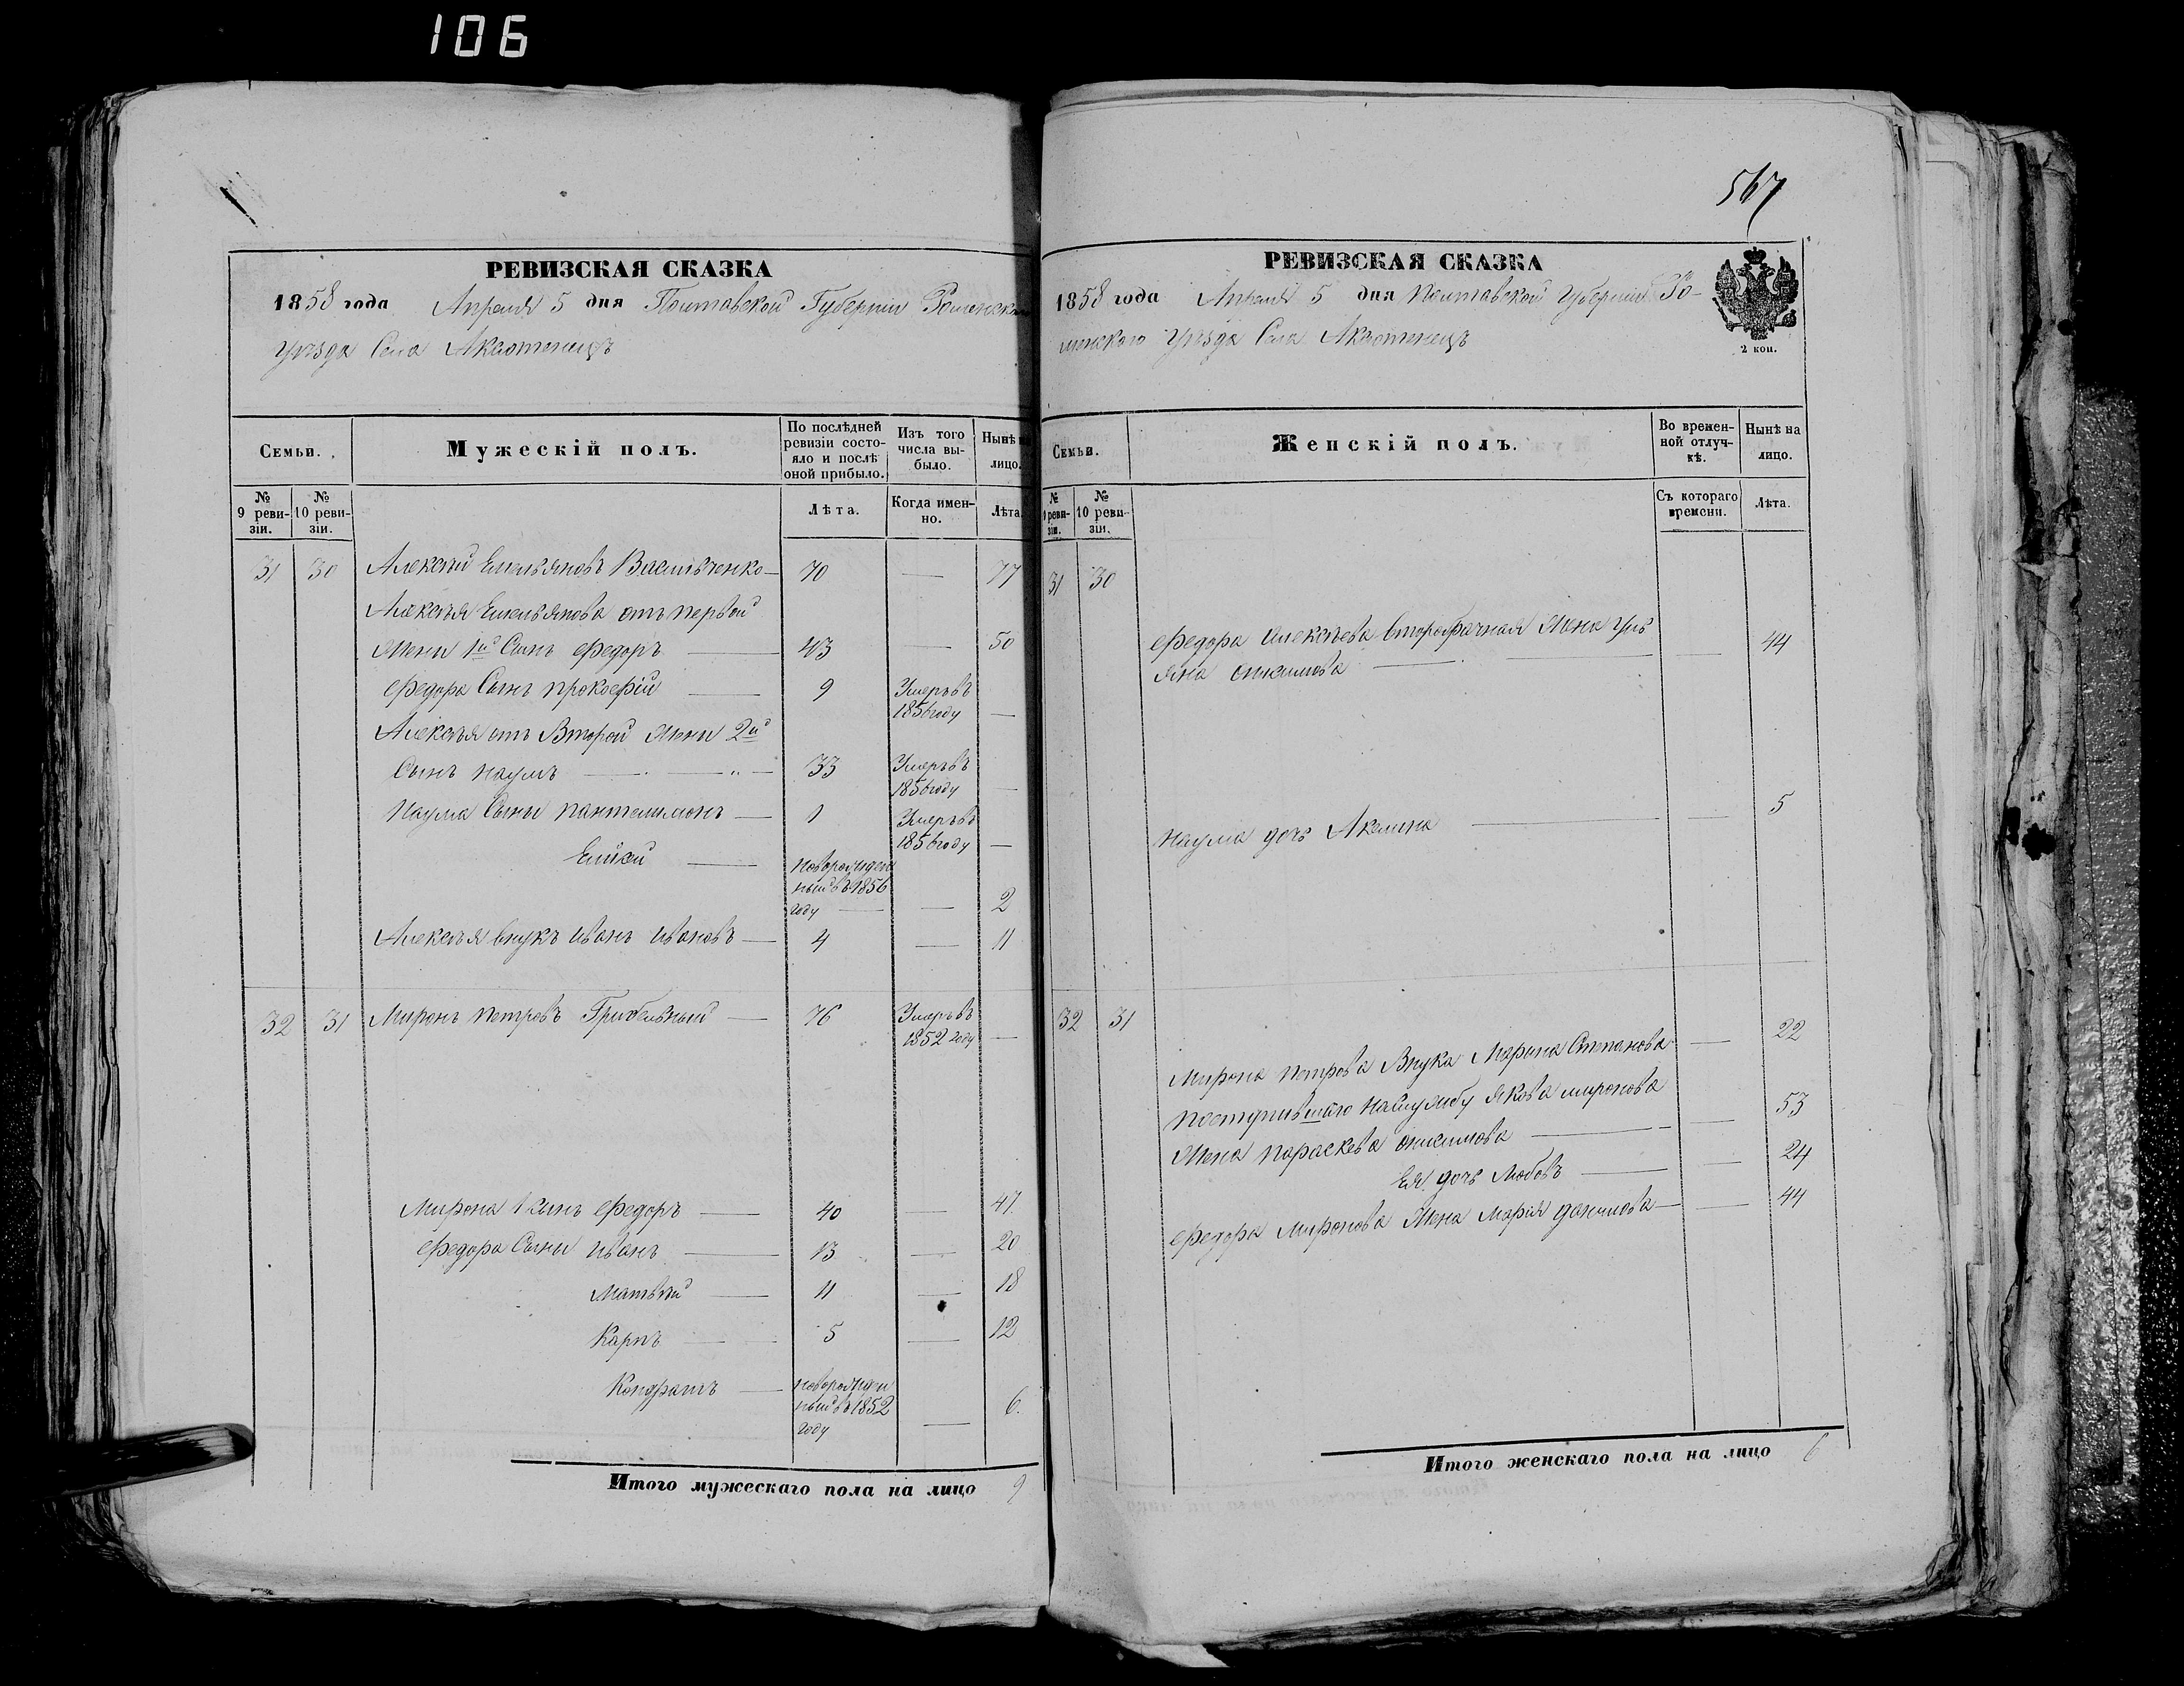 106
РЕВИЗСКАЯ СКАЗКА
1858 года Апреля 5 дня Полтавской Губернии Роменскаго
уѣзда Села Аксютенецъ
Семьи.
Мужескій полъ.
По послѣдней ревизіи состояло и послѣ оной прибыло.
Изъ того числа выбыло.
Нынѣ на лицо.
№ 9 ревизіи.
№ 10 ревизіи.
Лѣта.
Когда именно.
Лѣта
31 30 Алексѣй Емельяновъ Васильченко 70 — 77
Алексѣя Емельянова отъ первой
жены 1й Сынъ Федоръ — 43 — 50
Федора Сынъ Прокофій — 9 Умеръ въ
1856 году —
Алексѣя отъ Второй жены 2й
Сынъ Наумъ — 33 Умеръ въ
1856 году —
Наума Сыны Пантелимонъ — 1 Умеръ въ
1856 году —
Елисей — новорожден
ный въ 1856
году — — 2
Алексѣя внукъ Иванъ Ивановъ — 4 — 11
32 31 Миронъ Петровъ Гребельный — 76 Умеръ въ
1852 году —
Мирона Сынъ Федоръ — 40 — 47
Федора Сыны Иванъ — 13 — 20
Матвѣй — 11 — 18
Карпъ — 5 — 12
Кондратъ — новорожден
ный въ 1852
году — 6.
Итого мужескаго пола на лицо 9
567
РЕВИЗСКАЯ СКАЗКА
1858 года Апреля 5 дня Полтавской Губерніи Ро-
менскаго уѣзда Села Аксютенецъ
2 коп.
Семьи.
Женскій полъ.
Во временной отлучкѣ.
Нынѣ на лицо.
№ 9 ревизіи.
№ 10 ревизіи.
Съ котораго времени.
Лѣта.
31 30
Федора Алексѣева второбрачная жена Улі
яна Онисимова — — 44
Наума дочь Акелина — — 5
32 31
Мирона Петрова Внука Марина Степанова — 22
Поступившаго на службу Якова Миронова
жена Параскева Онисимова — — 53
Ея дочь Любовъ — — 24
Федора Миронова жена Марія Данилова — — 44
Итого женскаго пола на лицо 6